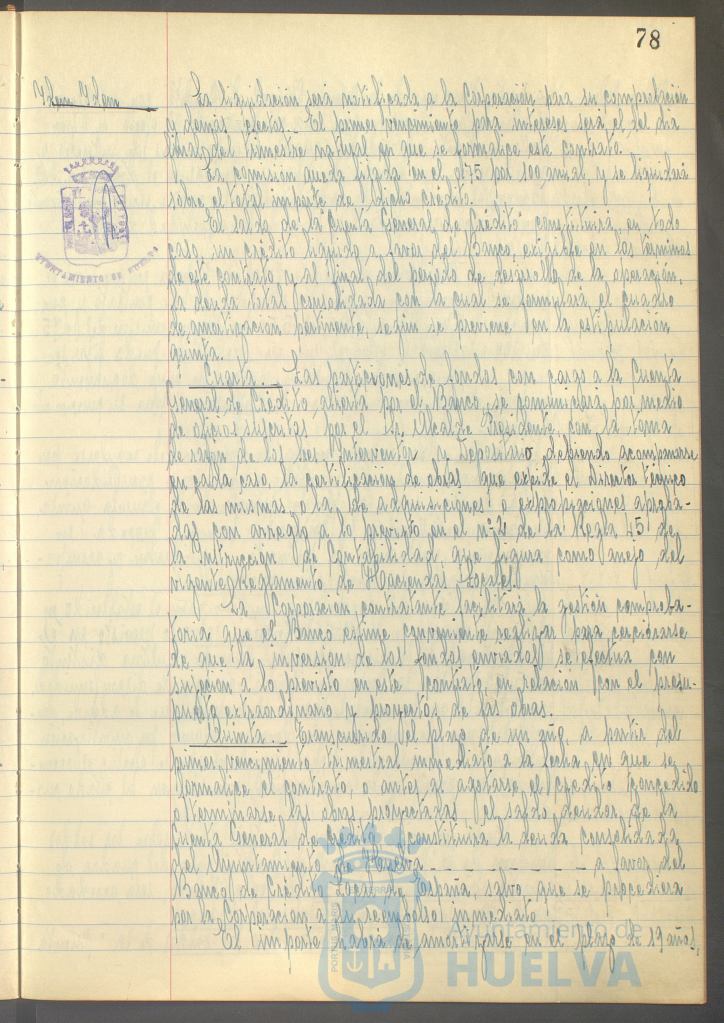 78
Idem Idem
La liquidación será notificada a la Corporación para su comprobación
y demás efectos. El primer vencimiento para intereses será el del día
final del trimestre natural en que se formalice este contrato.
La comisión queda fijada en el 0'75 por 100 anual, y se liquidará
sobre el total importe de dicho crédito.
El saldo de la Cuenta General de Crédito constituirá, en todo
caso, un crédito líquido a favor del Banco, exigible en los términos
de este contrato y al final del período de desarrollo de la operación,
la deuda total consolidada con la cual se formulará el cuadro
de amortización pertinente, según se previene en la estipulación
quinta.
Cuarta.- Las peticiones de fondos con cargo a la Cuenta
General de Crédito, abierta por el Banco, se comunicará por medio
de oficios suscritos por el Sr. Alcalde Presidente, con la toma
de razón de los Sres. Interventor y Depositario, debiendo acompañarse
en cada caso, la certificación de obras que expide el Director técnico
de las mismas, o la de adquisiciones o expropiaciones aproba-
das con arreglo a lo previsto en el nº 2 de la Regla 45 de
la Instrucción de Contabilidad, que figura como anejo del
vigente Reglamento de Haciendas Locales.
La Corporación contratante facilitará la gestión comproba-
toria que el Banco estime conveniente realizar para cerciorarse
de que la inversión de los fondos enviados se efectúa con
sujeción a lo previsto en este contrato, en relación con el presu-
puesto extraordinario y proyectos de las obras.
Quinta.- Transcurrido el plazo de un año, a partir del
primer vencimiento trimestral inmediato a la fecha en que se
formalice el contrato, o antes al agotarse el crédito concedido
o terminarse las obras proyectadas, el saldo deudor de la
Cuenta General de Crédito constituirá la deuda consolidada
del Ayuntamiento de Huelva - - - - - - - - - - a favor del
Banco de Crédito Local de España, salvo que se procediera
por la Corporación a su reembolso inmediato.
El importe habrá de amortizarse en el plazo de 19 años,
AYUNTAMIENTO DE HUELVA
Ayuntamiento de
HUELVA